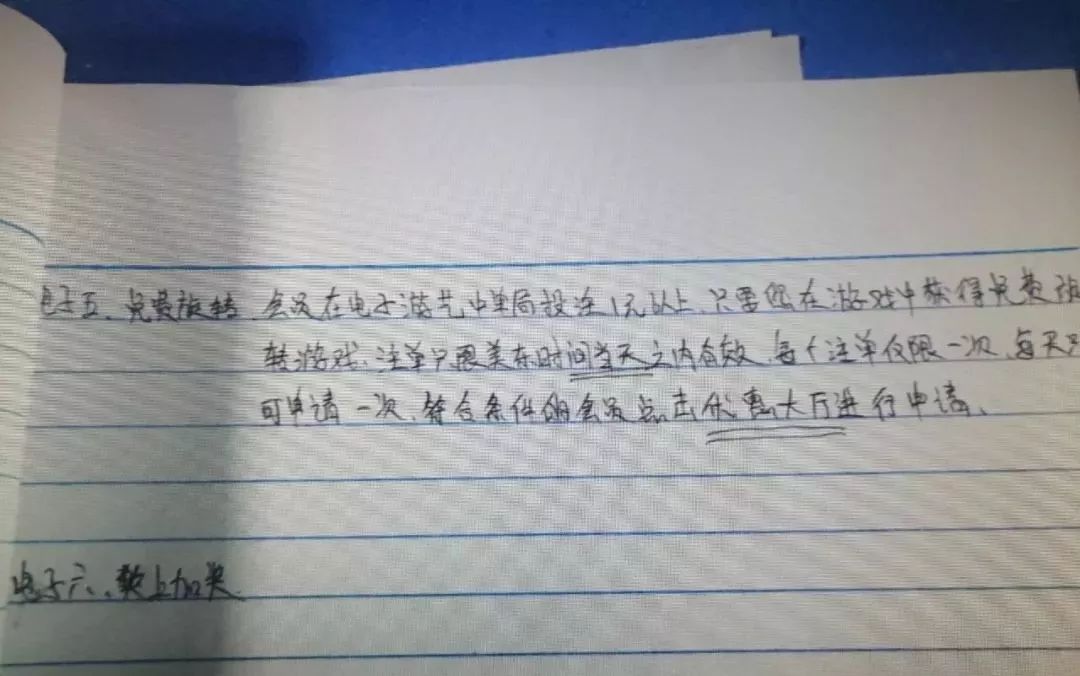 电子五、免费旋转 会员在电子游艺中单局投注1元以上、只要您在游戏中获得免费旋
转游戏、注单只限美东时间当天之内有效、每个注单仅限一次、每天只
可申请一次、符合条件的会员点击优惠大厅进行申请、
电子六、 上加奖